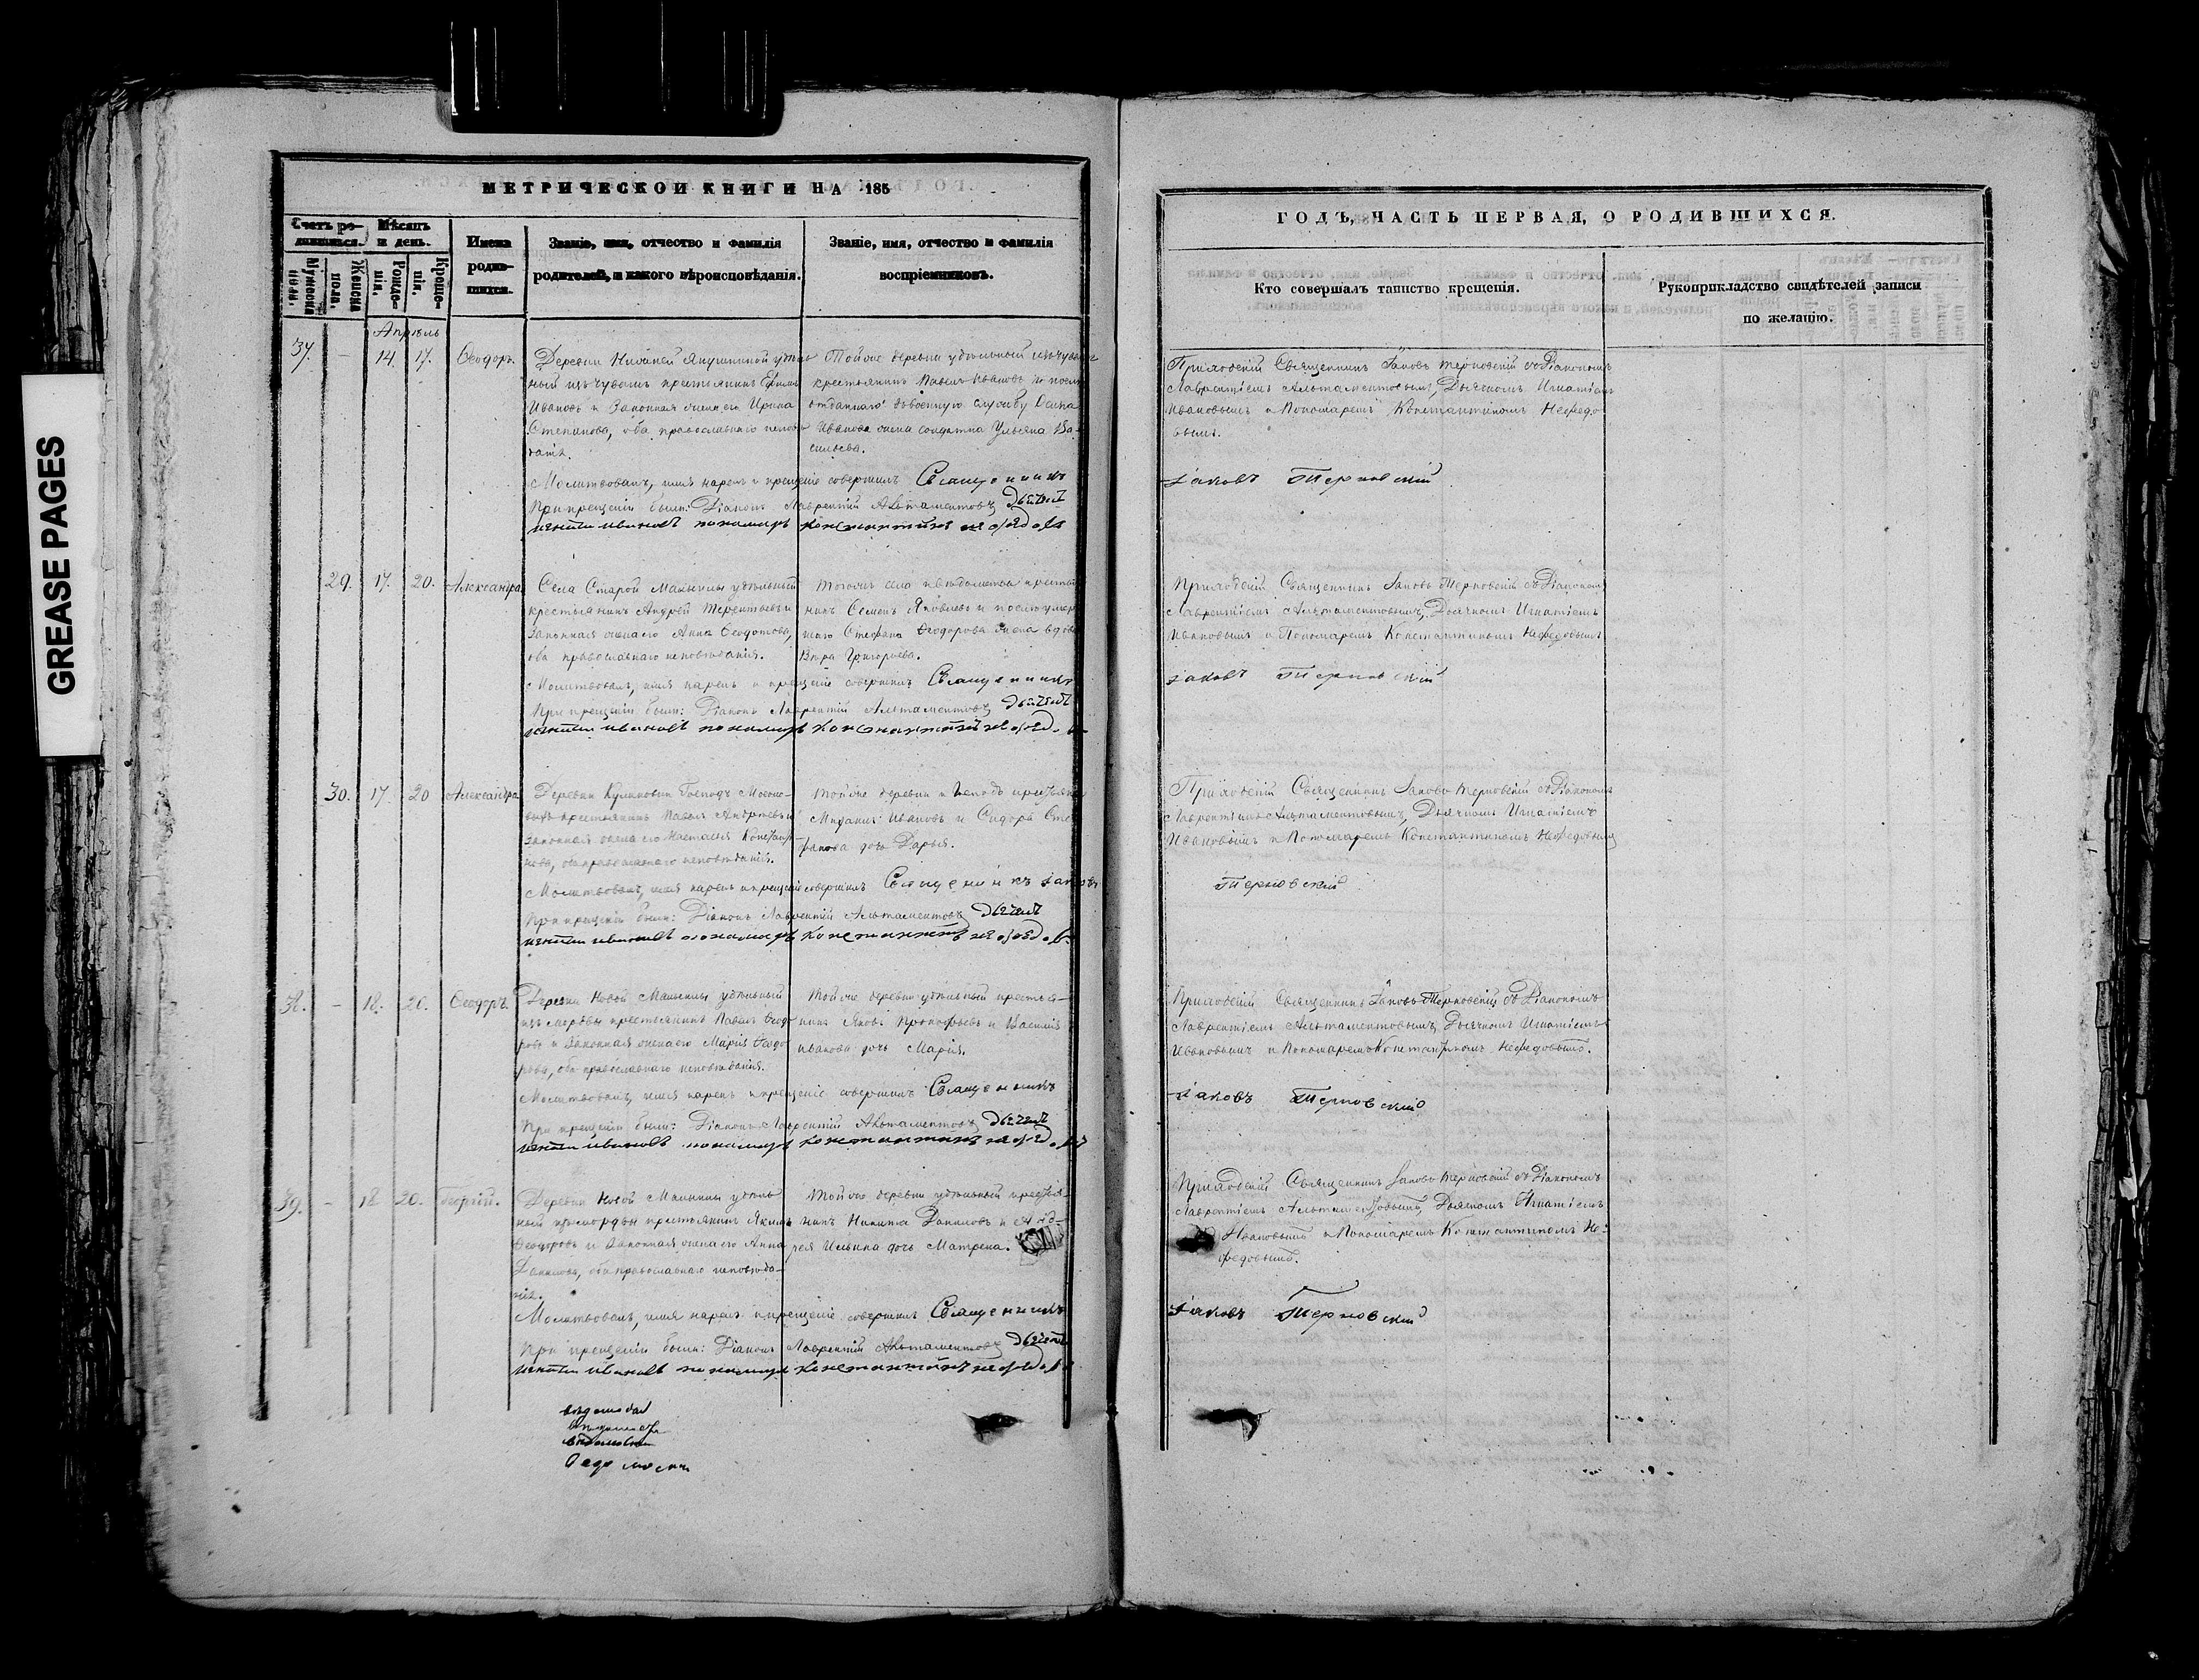 GREASE PAGES
МЕТРИЧЕСКОЙ КНИГИ НА 185
Счетъ родившихся.
Мѣсяцъ и день.
Мужеска пола.
Женска пола.
Рожденія.
Крещенія.
Имена родившихся.
Званіе, имя, отчество и фамилія
родителей, и какого вѣроисповѣданія.
Званіе, имя, отчество и фамилія
воспріемниковъ.
Апрѣль
37. - 14. 17. Ѳеодоръ.
Деревни Нижней Якушкиной удѣль
ный изъ чувашъ крестьянинъ Ефимъ
Ивановъ и Законная жена его Ирина
Степанова, оба православнаго исповѣ
данія.
Той же деревни удѣльный изъ чувашъ
крестьянинъ Павелъ Ивановъ и
отданнаго въ военную службу
Иванова жена солдатка Ульяна Ва-
сильева.
Молитвовалъ, имя нарекъ и крещеніе совершилъ Священникъ
При крещеніи были: Діаконъ Лаврентій Альтаментовъ, дьячекъ
игнатій ивановъ пономарь константинъ нефедовъ
29. 17. 20. Александра
Села Старой Маыклы удѣльный
крестьянинъ Андрей Терентьевъ и
законная жена его Анна Ѳедотова,
оба православнаго исповѣданія.
Тогоже села и вѣдомства крестья
нинъ Семенъ Яковлевъ и послѣ умер
шаго Стефана Ѳеодорова жена вдова
Вѣра Григорьева.
Молитвовалъ, имя нарекъ и крещеніе совершилъ Священникъ
При крещеніи были: Діаконъ Лаврентій Альтаментовъ, дьячекъ
игнатій ивановъ пономарь константинъ нефедовъ
30. 17 20 Александра
Деревни Господъ
крестьянинъ Павелъ Андреевъ и
законная жена его Настасія Констант
нова, оба православнаго исповѣданія.
Той же деревни и Господъ крестьянинъ
Михаилъ Ивановъ и Сидора Сте
фанова дочь Дарья.
Молитвовалъ, имя нарекъ и крещеніе совершилъ Священникъ Іаковъ
При крещеніи были: Діаконъ Лаврентій Альтаментовъ, дьячекъ
игнатій ивановъ пономарь константинъ нефедовъ
38. - 18. 20. Ѳеодоръ
Деревни Новой Маыклы удѣльный
изъ мордвы крестьянинъ Павелъ Ѳеодо
ровъ и Законная жена его Марія Ѳеодо
рова, оба православнаго исповѣданія.
Той же деревни удѣльный крестья-
нинъ Яковъ Прокофьевъ и Василія
Иванова дочь Марія.
Молитвовалъ, имя нарекъ и крещеніе совершилъ Священникъ
При крещеніи были: Діаконъ Лаврентій Альтаментовъ, дьячекъ
игнатій ивановъ пономарь константинъ нефедовъ
39. - 18 20. Георгій.
Деревни Новой Маыклы удѣль
ный изъ мордвы крестьянинъ Якимъ
Ѳеодоровъ и Законная жена его Анна
Данилова, оба православнаго исповѣда-
нія.
Той же деревни удѣльный крестья-
нинъ Никита Даниловъ и Анд-
рея Ильина дочь Матрена.
Молитвовалъ, имя нарекъ и крещеніе совершилъ Священникъ
При крещеніи были: Діаконъ Лаврентій Альтаментовъ, дьячекъ
игнатій ивановъ пономарь константинъ нефедовъ
ГОДЪ, ЧАСТЬ ПЕРВАЯ, О РОДИВШИХСЯ.
Кто совершалъ таинство крещенія.
Рукоприкладство свидѣтелей записи
по желанію.
Приходскій Священникъ Іаковъ Терновскій съ Діакономъ
Лаврентіемъ Альтаментовымъ, Дьячкомъ Игнатіемъ
Ивановымъ и Пономаремъ Константиномъ Нефедо
вымъ.
Іаковъ Терновскій
Приходскій Священникъ Іаковъ Терновскій съ Діакономъ
Лаврентіемъ Альтаментовымъ, Дьячкомъ Игнатіемъ
Ивановымъ и Пономаремъ Константиномъ Нефедовымъ
Іаковъ Терновскій
Приходскій Священникъ Іаковъ Терновскій съ Діакономъ
Лаврентіемъ Альтаментовымъ, Дьячкомъ Игнатіемъ
Ивановымъ и Пономаремъ Константиномъ Нефедовымъ
Терновскій
Приходскій Священникъ Іаковъ Терновскій съ Діакономъ
Лаврентіемъ Альтаментовымъ, Дьячкомъ Игнатіемъ
Ивановымъ и Пономаремъ Константиномъ Нефедовымъ.
Іаковъ Терновскій
Приходскій Священникъ Іаковъ Терновскій съ Діакономъ
Лаврентіемъ Альтаментовымъ, Дьячкомъ Игнатіемъ
Ивановымъ и Пономаремъ Константиномъ Не-
федовымъ.
Іаковъ Терновскій